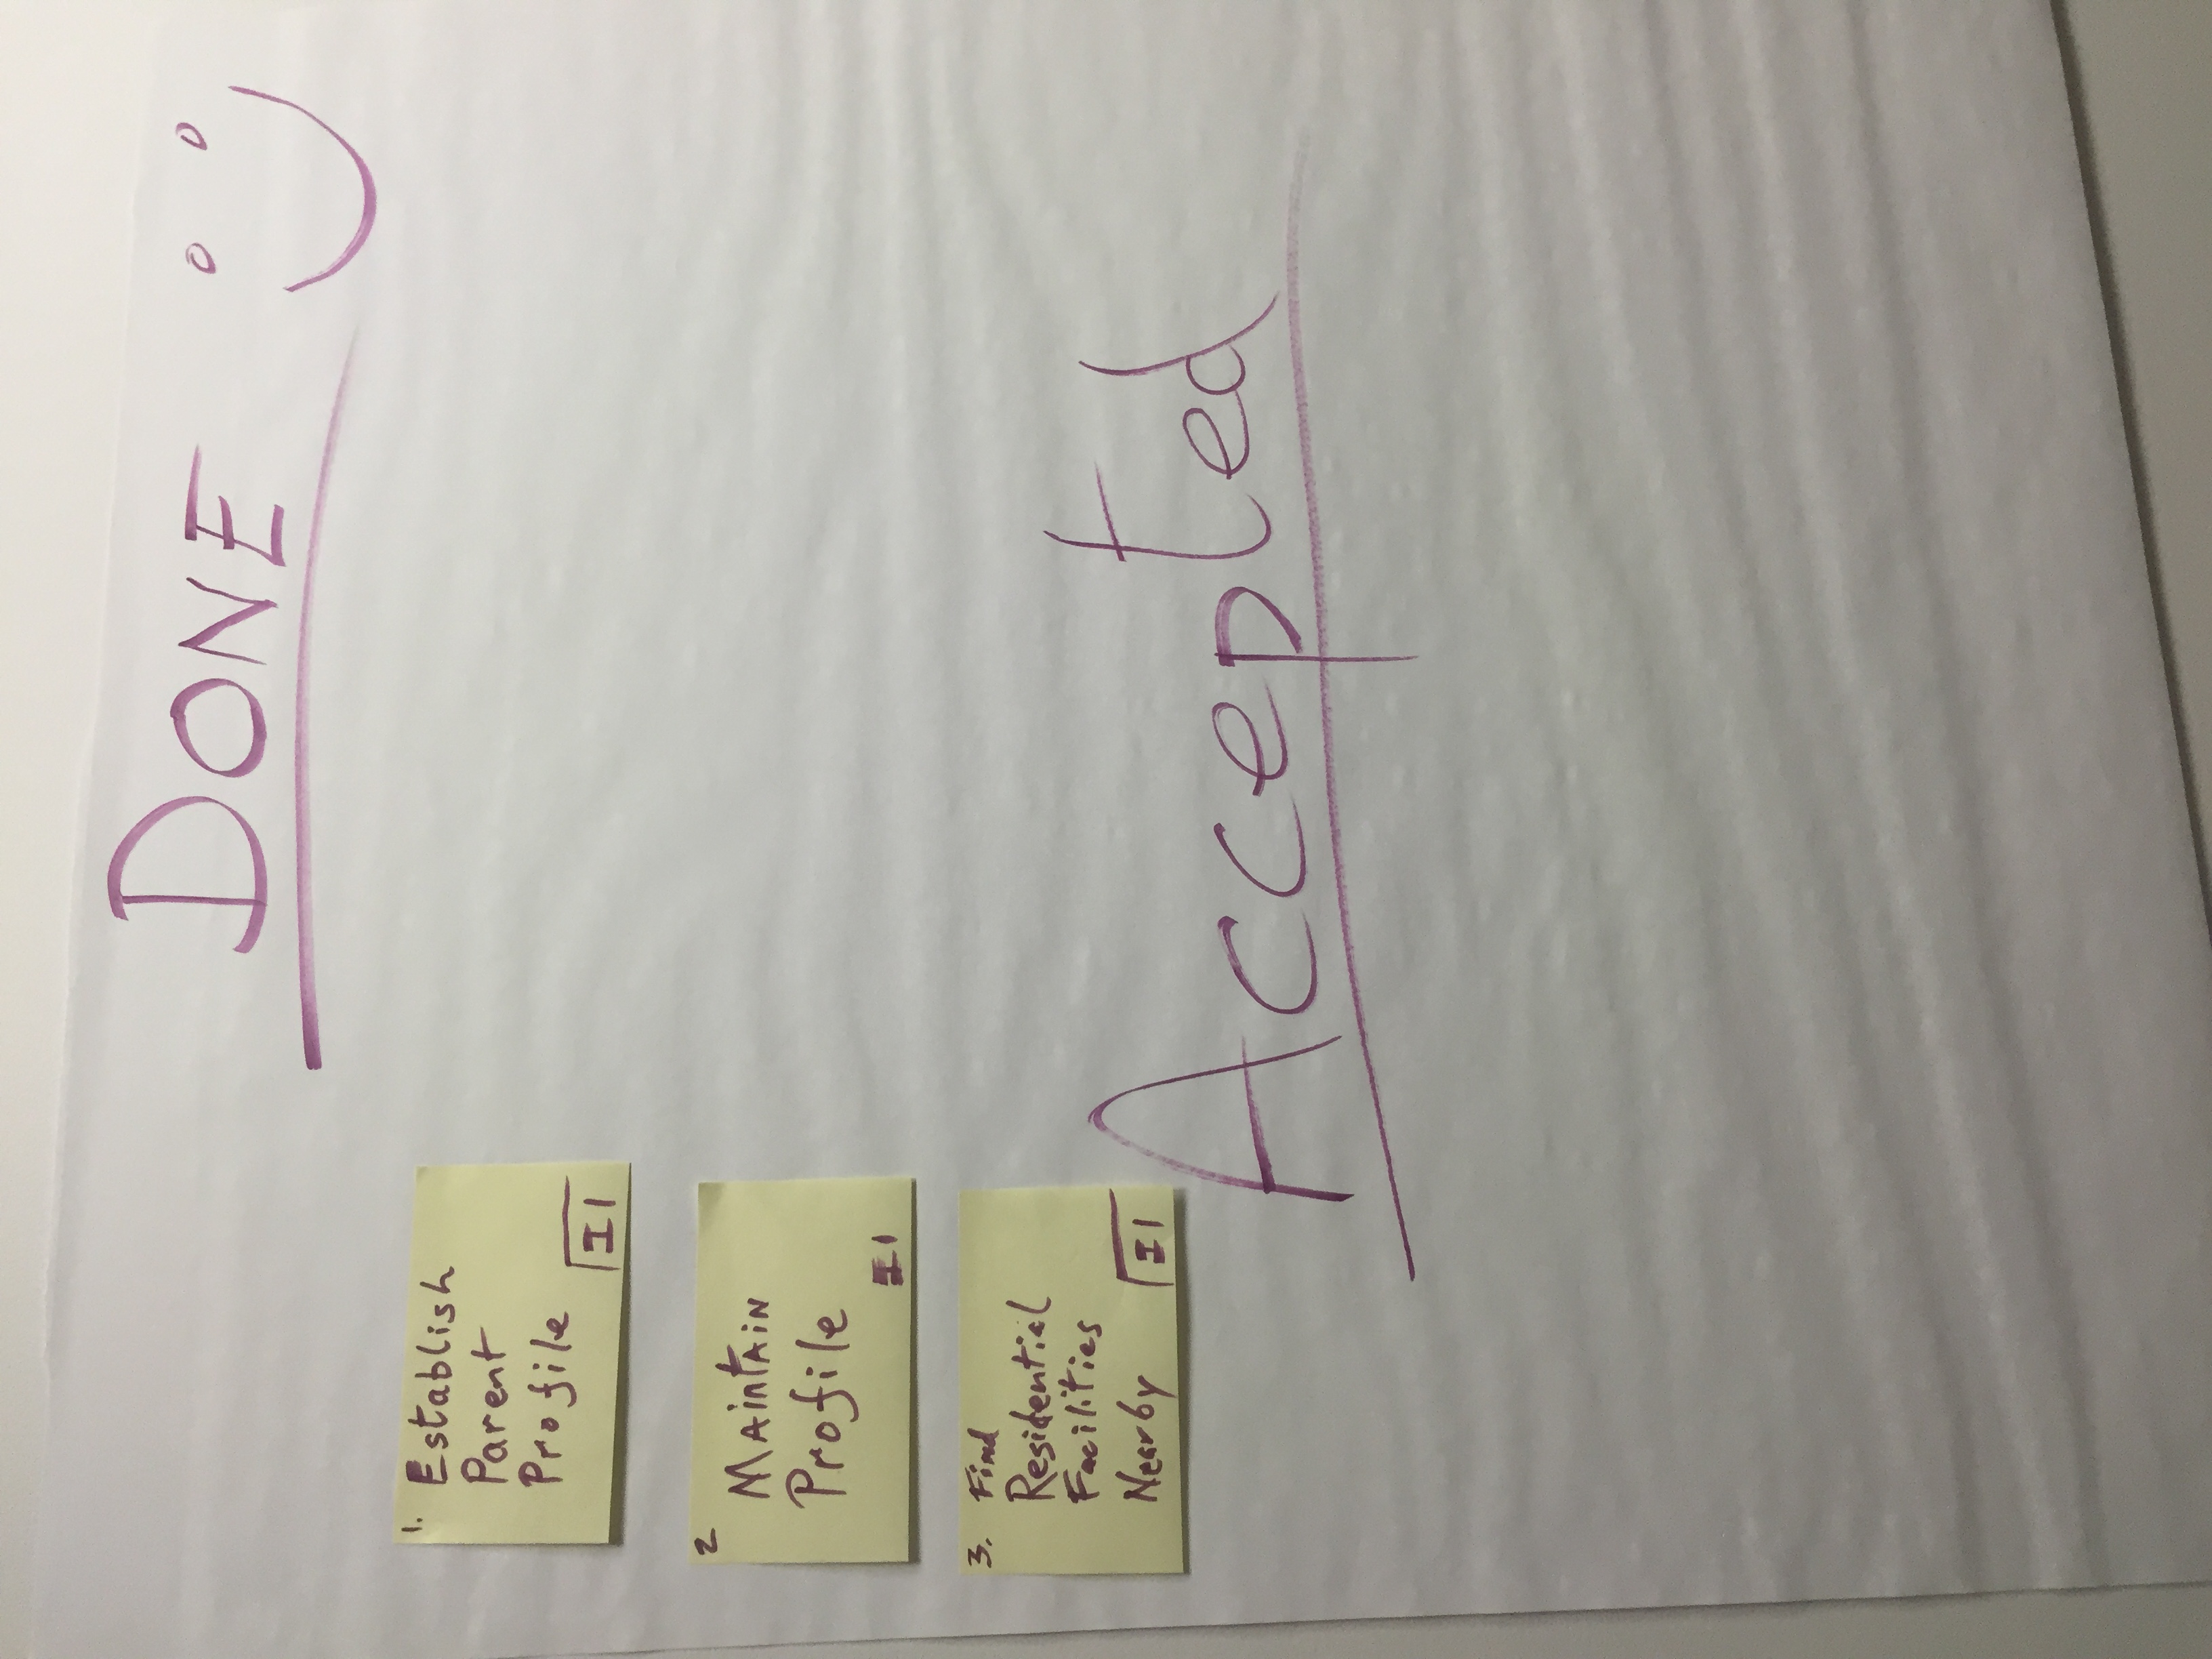 DONE
1. Establish
Parent
Profile
I1
2
MAintAiN
Profile
I1
3. Find
Residential
Facilities
Nearby
I1
Accepted